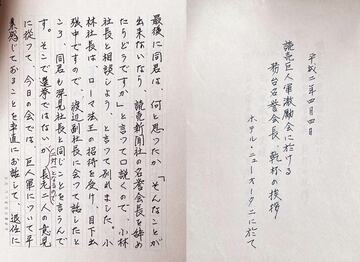 平成二年四月四日
読売巨人軍激励会に於ける
務台名誉会長、乾杯の挨拶
ホテル・ニューオータニに於て
最後に同君は、何と思ったか「そんなことが
出来ないなら、読売新聞社の名誉会長を辞め
たらどうですか」と言って口説くので、小林
社長と相談しよう、と言って別れました。小
林社長は、ローマ法王の招待を受け、目下出
張中ですので、渡辺副社長に会って話したと
ころ、同君も深見社長と同じことを言うんで
す。そこで選挙ではないが、長老二人の意見
に従って、今日の会では、巨人軍について平
素感じておることを率直にお話して、退任に